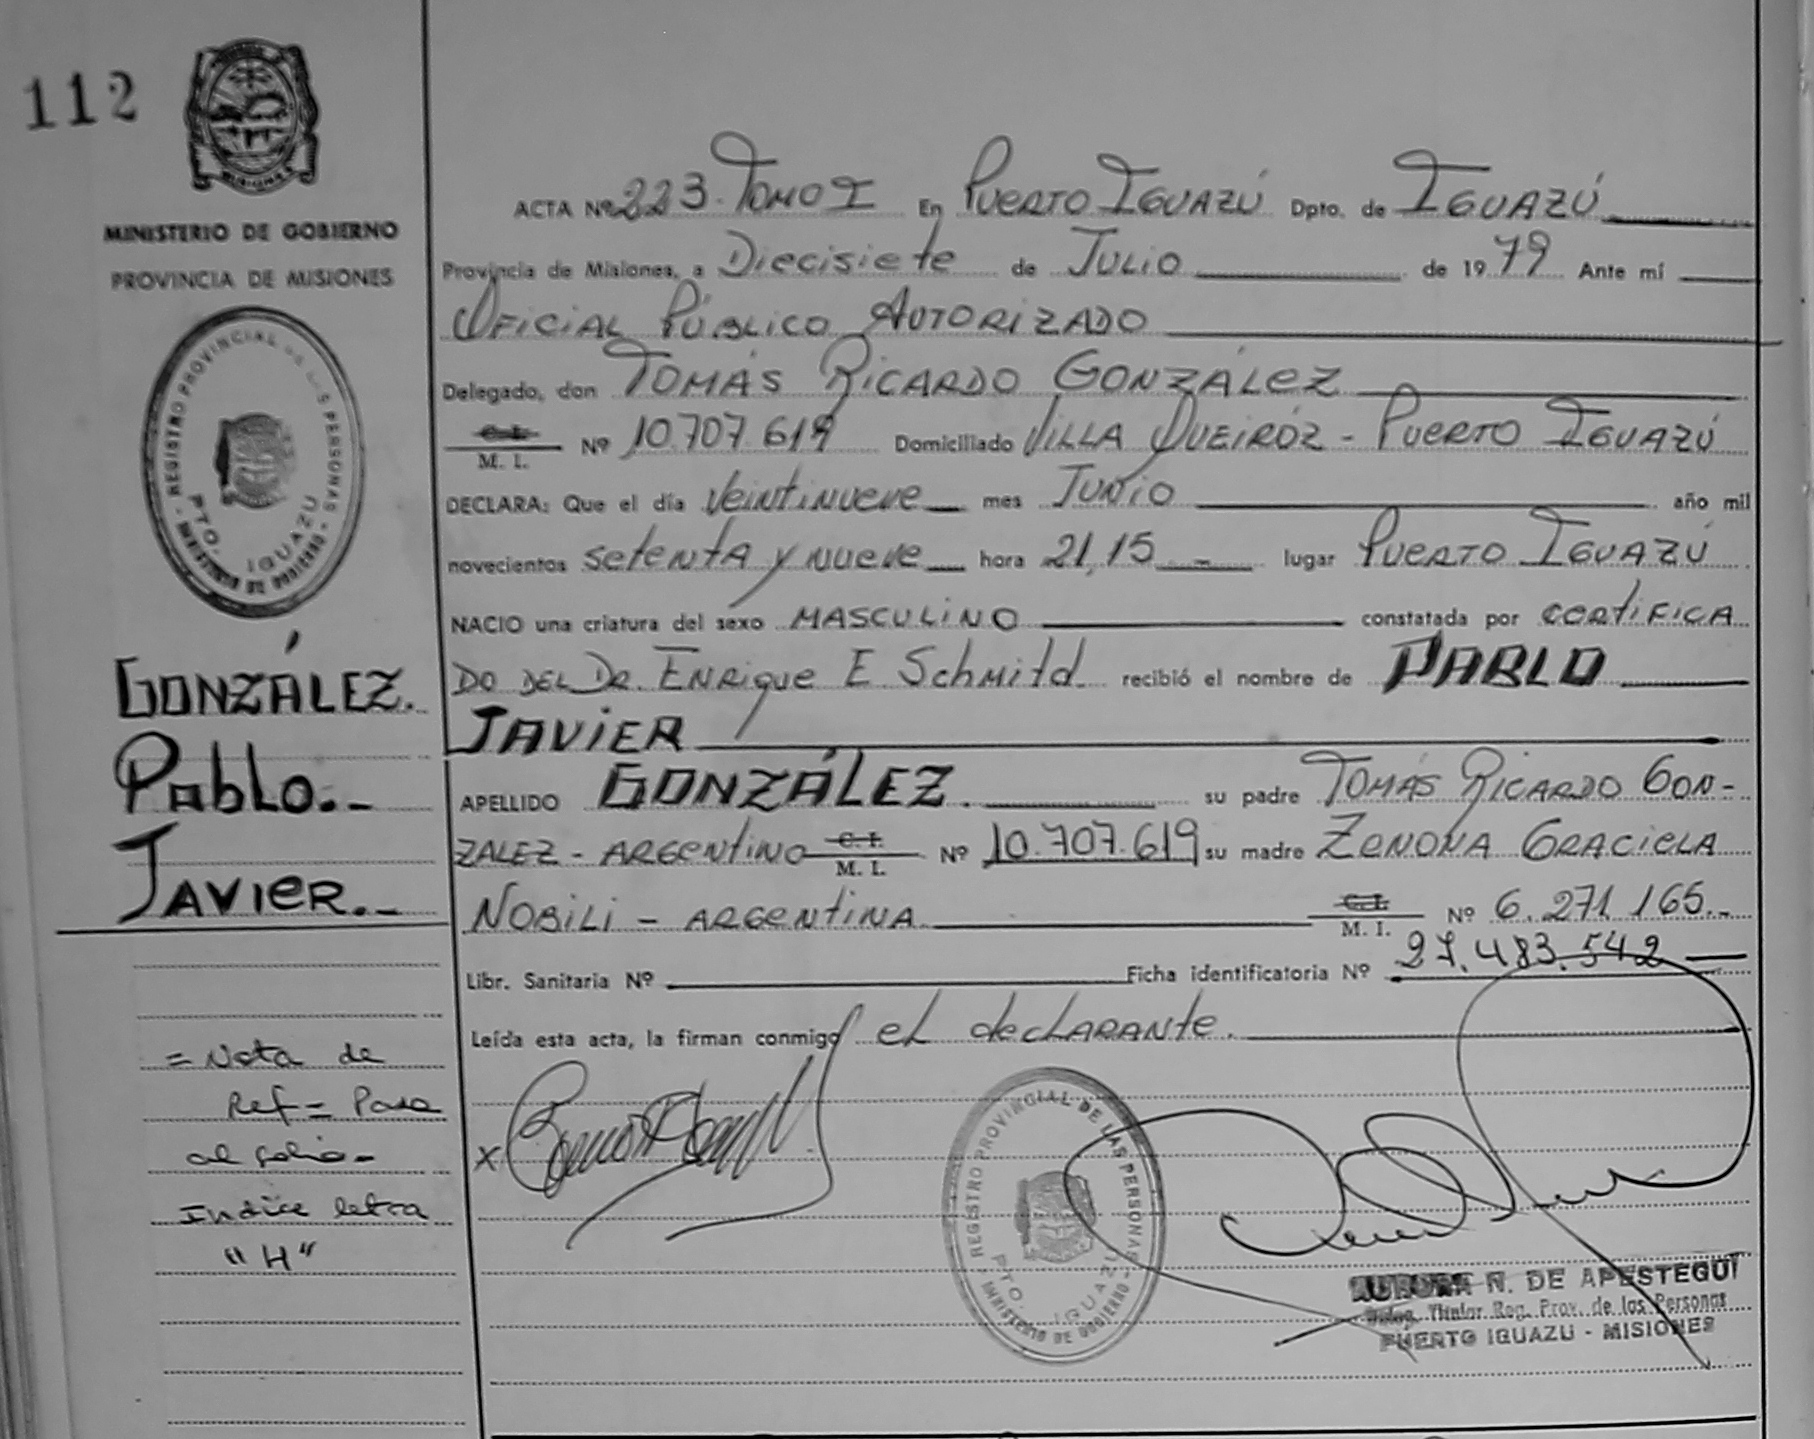 112
MISIONES
MINISTERIO DE GOBIERNO
PROVINCIA DE MISIONES
REGISTRO PROVINCIAL DE LAS PERSONAS
PTO. IGUAZU
- MINISTERIO DE GOBIERNO -
GONZÁLEZ.
Pablo.-
JAVIER.-
= Nota de
Ref = Pasa
al folio-
Indice letra
"H"
ACTA Nº 223. TOMO I En PUERTO IGUAZÚ Dpto. de IGUAZÚ
Provincia de Misiones, a Diecisiete de JULIO de 1979 Ante mí
OFICIAL PÚBLICO AUTORIZADO
Delegado, don TOMÁS RICARDO GONZÁLEZ
C. I.
M. I. Nº 10.707.619 Domiciliado VILLA QUEIRÓZ - PUERTO IGUAZÚ
DECLARA: Que el día Veintinueve mes JUNIO año mil
novecientos setenta y nueve hora 21,15 lugar PUERTO IGUAZÚ
NACIO una criatura del sexo MASCULINO constatada por CERTIFICA
DO DEL DR. ENRIQUE E SCHMITD recibió el nombre de PABLO
JAVIER
APELLIDO GONZÁLEZ. su padre TOMÁS RICARDO GON-
ZALEZ - ARGENTINO C. I.
M. I. Nº 10.707.619 su madre ZENONA GRACIELA
NOBILI - ARGENTINA C. I.
M. I. Nº 6.271.165.-
Libr. Sanitaria Nº Ficha identificatoria Nº 27.483.542
Leída esta acta, la firman conmigo el declarante.
x
REGISTRO PROVINCIAL DE LAS PERSONAS
PTO. IGUAZU
- MINISTERIO DE GOBIERNO -
AURORA N. DE APESTEGUI
Deleg. Titular Reg. Prov. de las Personas
PUERTO IGUAZU - MISIONES